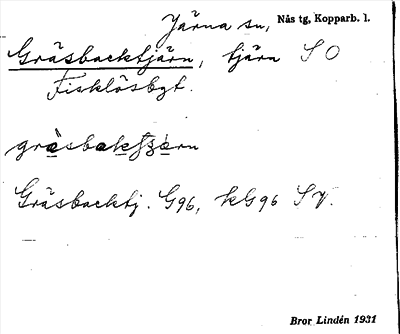 Järna sn, Nås tg, Kopparb. l.
Gräsbacktjärn, tjärn SO
Fisklösbgt.
Gräsbacktj. G96, kG96 SV.
Bror Lindén 1931